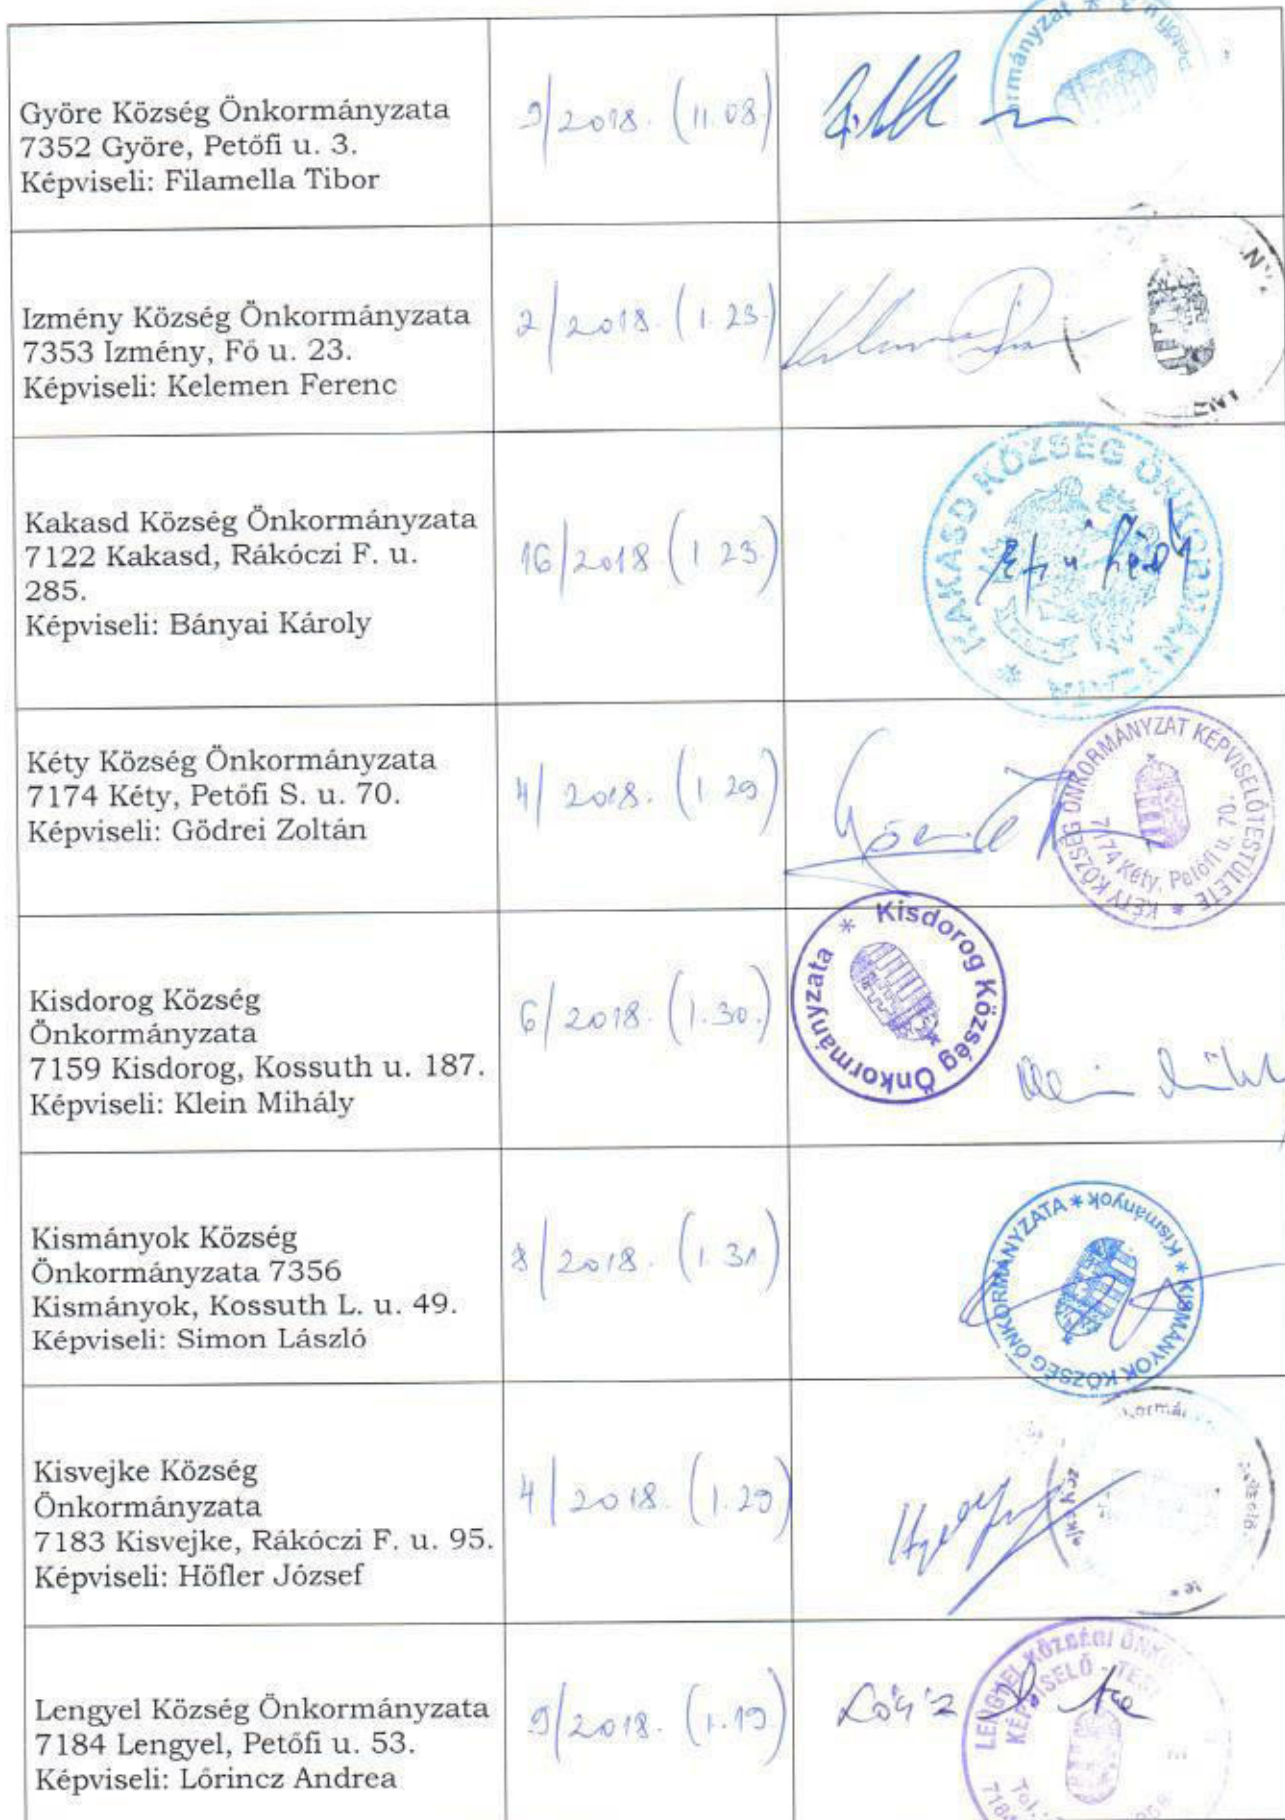 Györe Község Önkormányzata
7352 Györe, Petőfi u. 3.
Képviseli: Filamella Tibor
9/2018. (II.08.)
Izmény Község Önkormányzata
7353 Izmény, Fő u. 23.
Képviseli: Kelemen Ferenc
2/2018. (I.23.)
Kakasd Község Önkormányzata
7122 Kakasd, Rákóczi F. u.
285.
Képviseli: Bányai Károly
16/2018 (I 23.)
KAKASD KÖZSÉG ÖNKORMÁNYZATA *
Kéty Község Önkormányzata
7174 Kéty, Petőfi S. u. 70.
Képviseli: Gödrei Zoltán
4/2018. (I.29.)
KÉTY KÖZSÉG ÖNKORMÁNYZAT KÉPVISELŐTESTÜLETE *
7174 Kéty, Petőfi u. 70.
Kisdorog Község
Önkormányzata
7159 Kisdorog, Kossuth u. 187.
Képviseli: Klein Mihály
6/2018. (I.30.)
Kisdorog Község Önkormányzata *
Kismányok Község
Önkormányzata 7356
Kismányok, Kossuth L. u. 49.
Képviseli: Simon László
8/2018. (I.31)
KISMÁNYOK KÖZSÉG ÖNKORMÁNYZATA * Kismányok *
Kisvejke Község
Önkormányzata
7183 Kisvejke, Rákóczi F. u. 95.
Képviseli: Höfler József
4/2018. (I.29)
Lengyel Község Önkormányzata
7184 Lengyel, Petőfi u. 53.
Képviseli: Lőrincz Andrea
9/2018. (I.19.)
LENGYEL KÖZSÉGI
KÉPVISELŐ-TEST